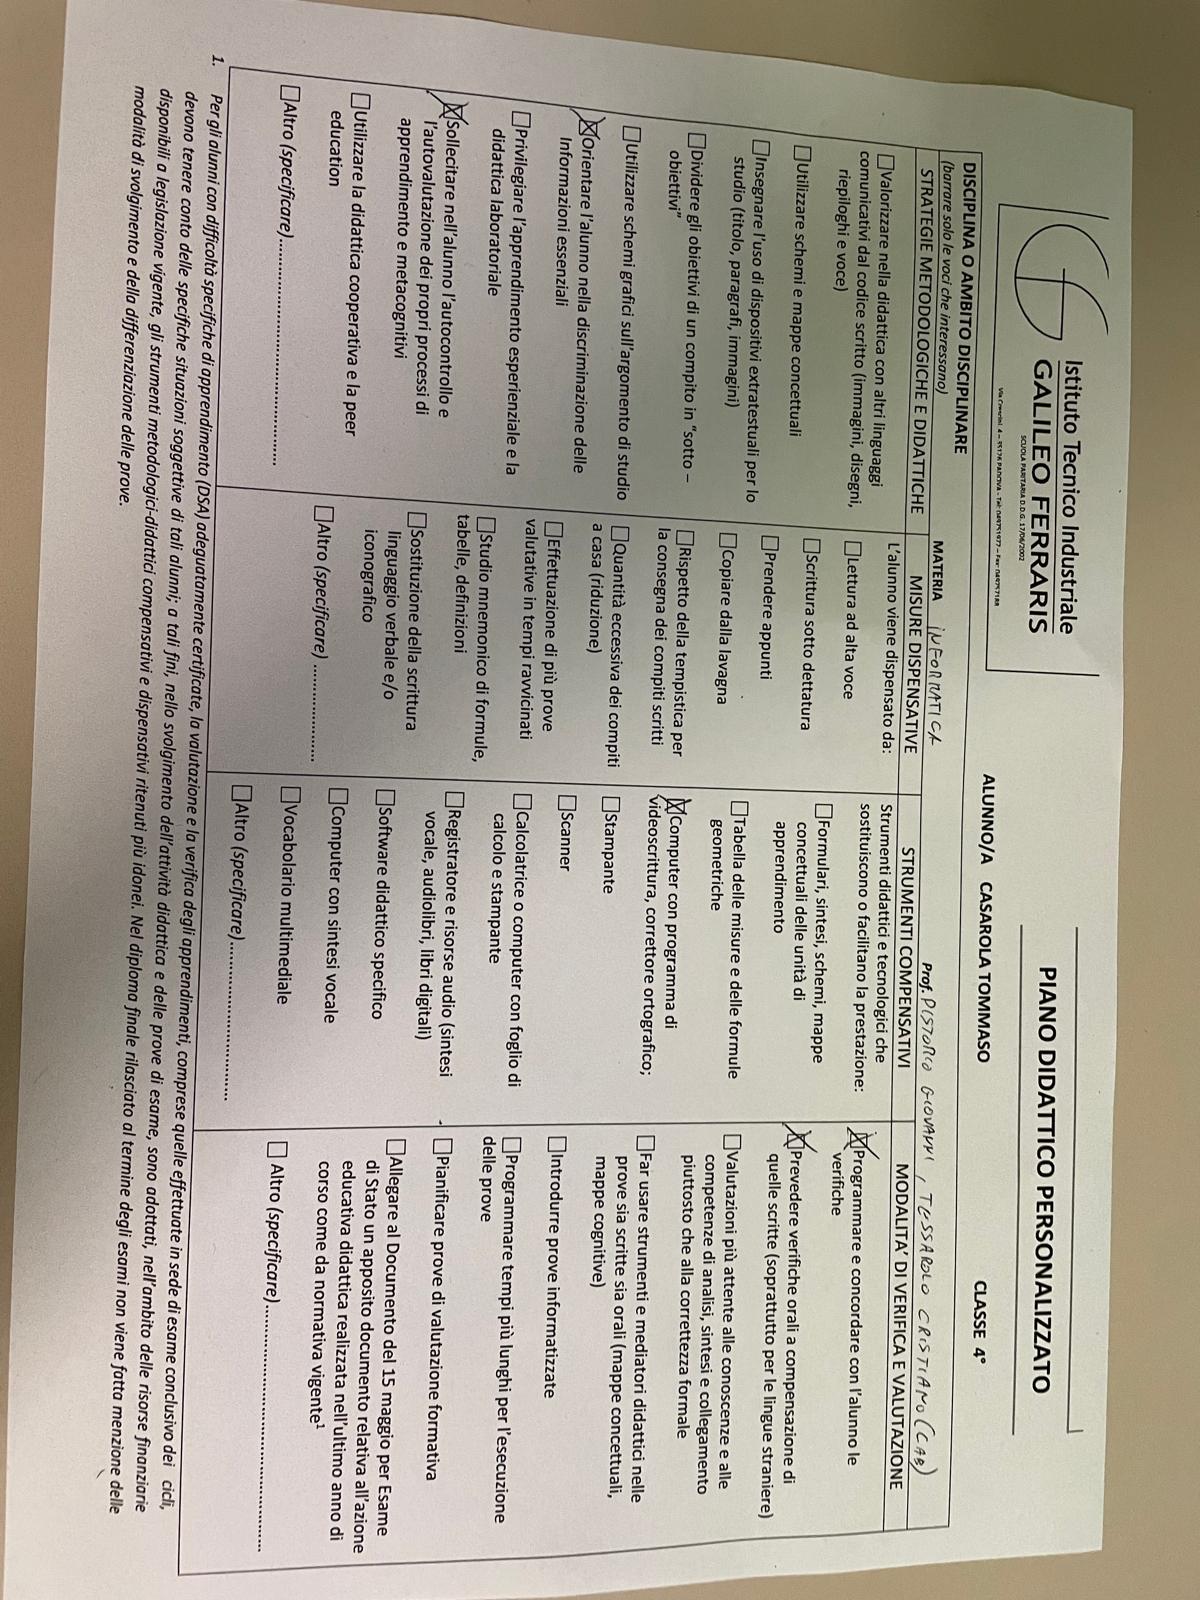 Istituto Tecnico Industriale
GALILEO FERRARIS
SCUOLA PARITARIA D.D.G. 17/06/2002
Via Crescini, 4 – 35126 PADOVA - Tel: 049751977 – Fax: 049757188
PIANO DIDATTICO PERSONALIZZATO
ALUNNO/A CASAROLA TOMMASO CLASSE 4°
DISCIPLINA O AMBITO DISCIPLINARE
(barrare solo le voci che interessano)
MATERIA INFORMATICA Prof. PISTORIO GIOVANNI, TESSAROLO CRISTIANO (LAB)
STRATEGIE METODOLOGICHE E DIDATTICHE
Valorizzare nella didattica con altri linguaggi
comunicativi dal codice scritto (immagini, disegni,
riepiloghi e voce)
Utilizzare schemi e mappe concettuali
Insegnare l'uso di dispositivi extratestuali per lo
studio (titolo, paragrafi, immagini)
Dividere gli obiettivi di un compito in "sotto –
obiettivi"
Utilizzare schemi grafici sull'argomento di studio
Orientare l'alunno nella discriminazione delle
Informazioni essenziali
Privilegiare l'apprendimento esperienziale e la
didattica laboratoriale
Sollecitare nell'alunno l'autocontrollo e
l'autovalutazione dei propri processi di
apprendimento e metacognitivi
Utilizzare la didattica cooperativa e la peer
education
Altro (specificare)..........................................
MISURE DISPENSATIVE
L'alunno viene dispensato da:
Lettura ad alta voce
Scrittura sotto dettatura
Prendere appunti
Copiare dalla lavagna
Rispetto della tempistica per
la consegna dei compiti scritti
Quantità eccessiva dei compiti
a casa (riduzione)
Effettuazione di più prove
valutative in tempi ravvicinati
Studio mnemonico di formule,
tabelle, definizioni
Sostituzione della scrittura
linguaggio verbale e/o
iconografico
Altro (specificare) ..................
STRUMENTI COMPENSATIVI
Strumenti didattici e tecnologici che
sostituiscono o facilitano la prestazione:
Formulari, sintesi, schemi, mappe
concettuali delle unità di
apprendimento
Tabella delle misure e delle formule
geometriche
Computer con programma di
videoscrittura, correttore ortografico;
Stampante
Scanner
Calcolatrice o computer con foglio di
calcolo e stampante
Registratore e risorse audio (sintesi
vocale, audiolibri, libri digitali)
Software didattico specifico
Computer con sintesi vocale
Vocabolario multimediale
Altro (specificare)..............................
MODALITA' DI VERIFICA E VALUTAZIONE
Programmare e concordare con l'alunno le
verifiche
Prevedere verifiche orali a compensazione di
quelle scritte (soprattutto per le lingue straniere)
Valutazioni più attente alle conoscenze e alle
competenze di analisi, sintesi e collegamento
piuttosto che alla correttezza formale
Far usare strumenti e mediatori didattici nelle
prove sia scritte sia orali (mappe concettuali,
mappe cognitive)
Introdurre prove informatizzate
Programmare tempi più lunghi per l'esecuzione
delle prove
Pianificare prove di valutazione formativa
Allegare al Documento del 15 maggio per Esame
di Stato un apposito documento relativa all'azione
educativa didattica realizzata nell'ultimo anno di
corso come da normativa vigente¹
Altro (specificare)..............................................
1. Per gli alunni con difficoltà specifiche di apprendimento (DSA) adeguatamente certificate, la valutazione e la verifica degli apprendimenti, comprese quelle effettuate in sede di esame conclusivo dei cicli,
devono tenere conto delle specifiche situazioni soggettive di tali alunni; a tali fini, nello svolgimento dell'attività didattica e delle prove di esame, sono adottati, nell'ambito delle risorse finanziarie
disponibili a legislazione vigente, gli strumenti metodologici-didattici compensativi e dispensativi ritenuti più idonei. Nel diploma finale rilasciato al termine degli esami non viene fatta menzione delle
modalità di svolgimento e della differenziazione delle prove.